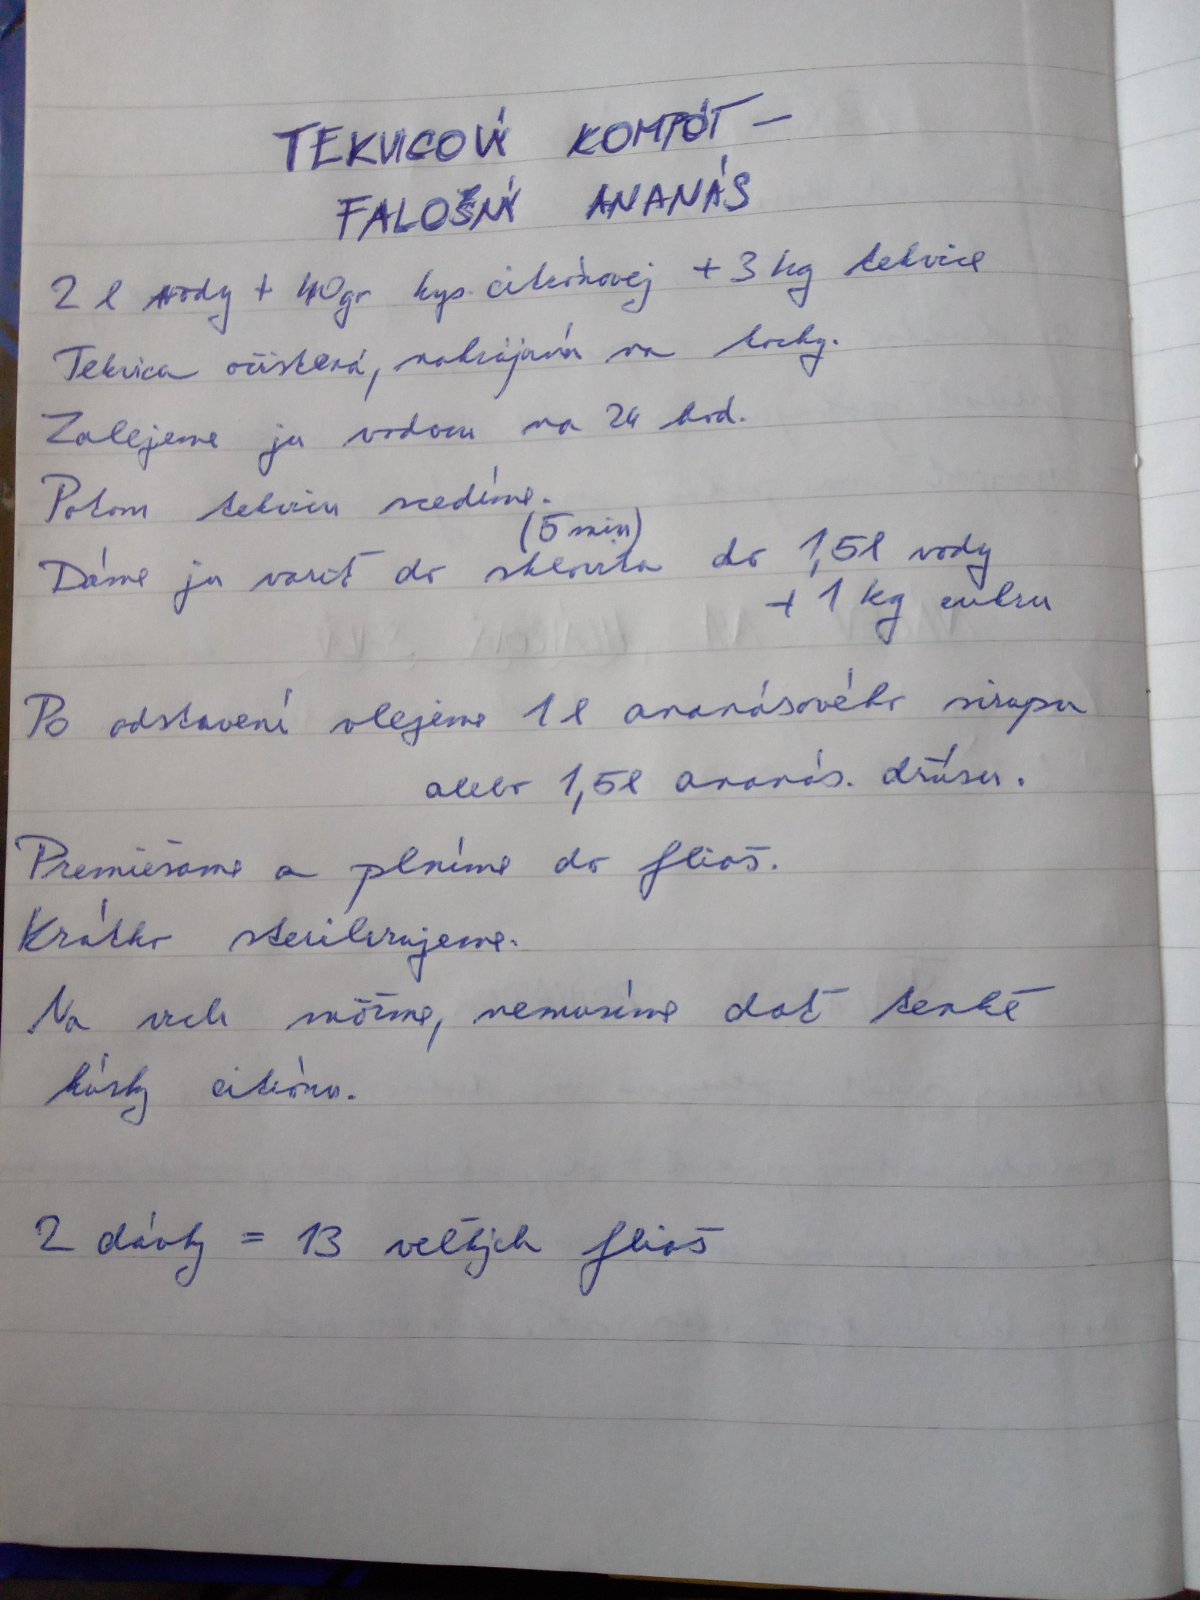 TEKVICOVÝ KOMPÓT –
FALOŠNÝ ANANÁS
2 l vody + 40gr kys. citrónovej + 3 kg tekvice
Tekvica očistená, nakrájaná na kocky.
Zalejeme ju vodou na 24 hod.
Potom tekvicu scedíme.
(5 min)
Dáme ju variť do sklovita do 1,5l vody
+ 1 kg cukru
Po odstavení vlejeme 1 l ananásového sirupu
alebo 1,5l ananás. džúsu.
Premiešame a plníme do fliaš.
Krátko sterilizujeme.
Na vrch môžme, nemusíme dať tenké
kúsky citrónu.
2 dávky = 13 veľkých fliaš